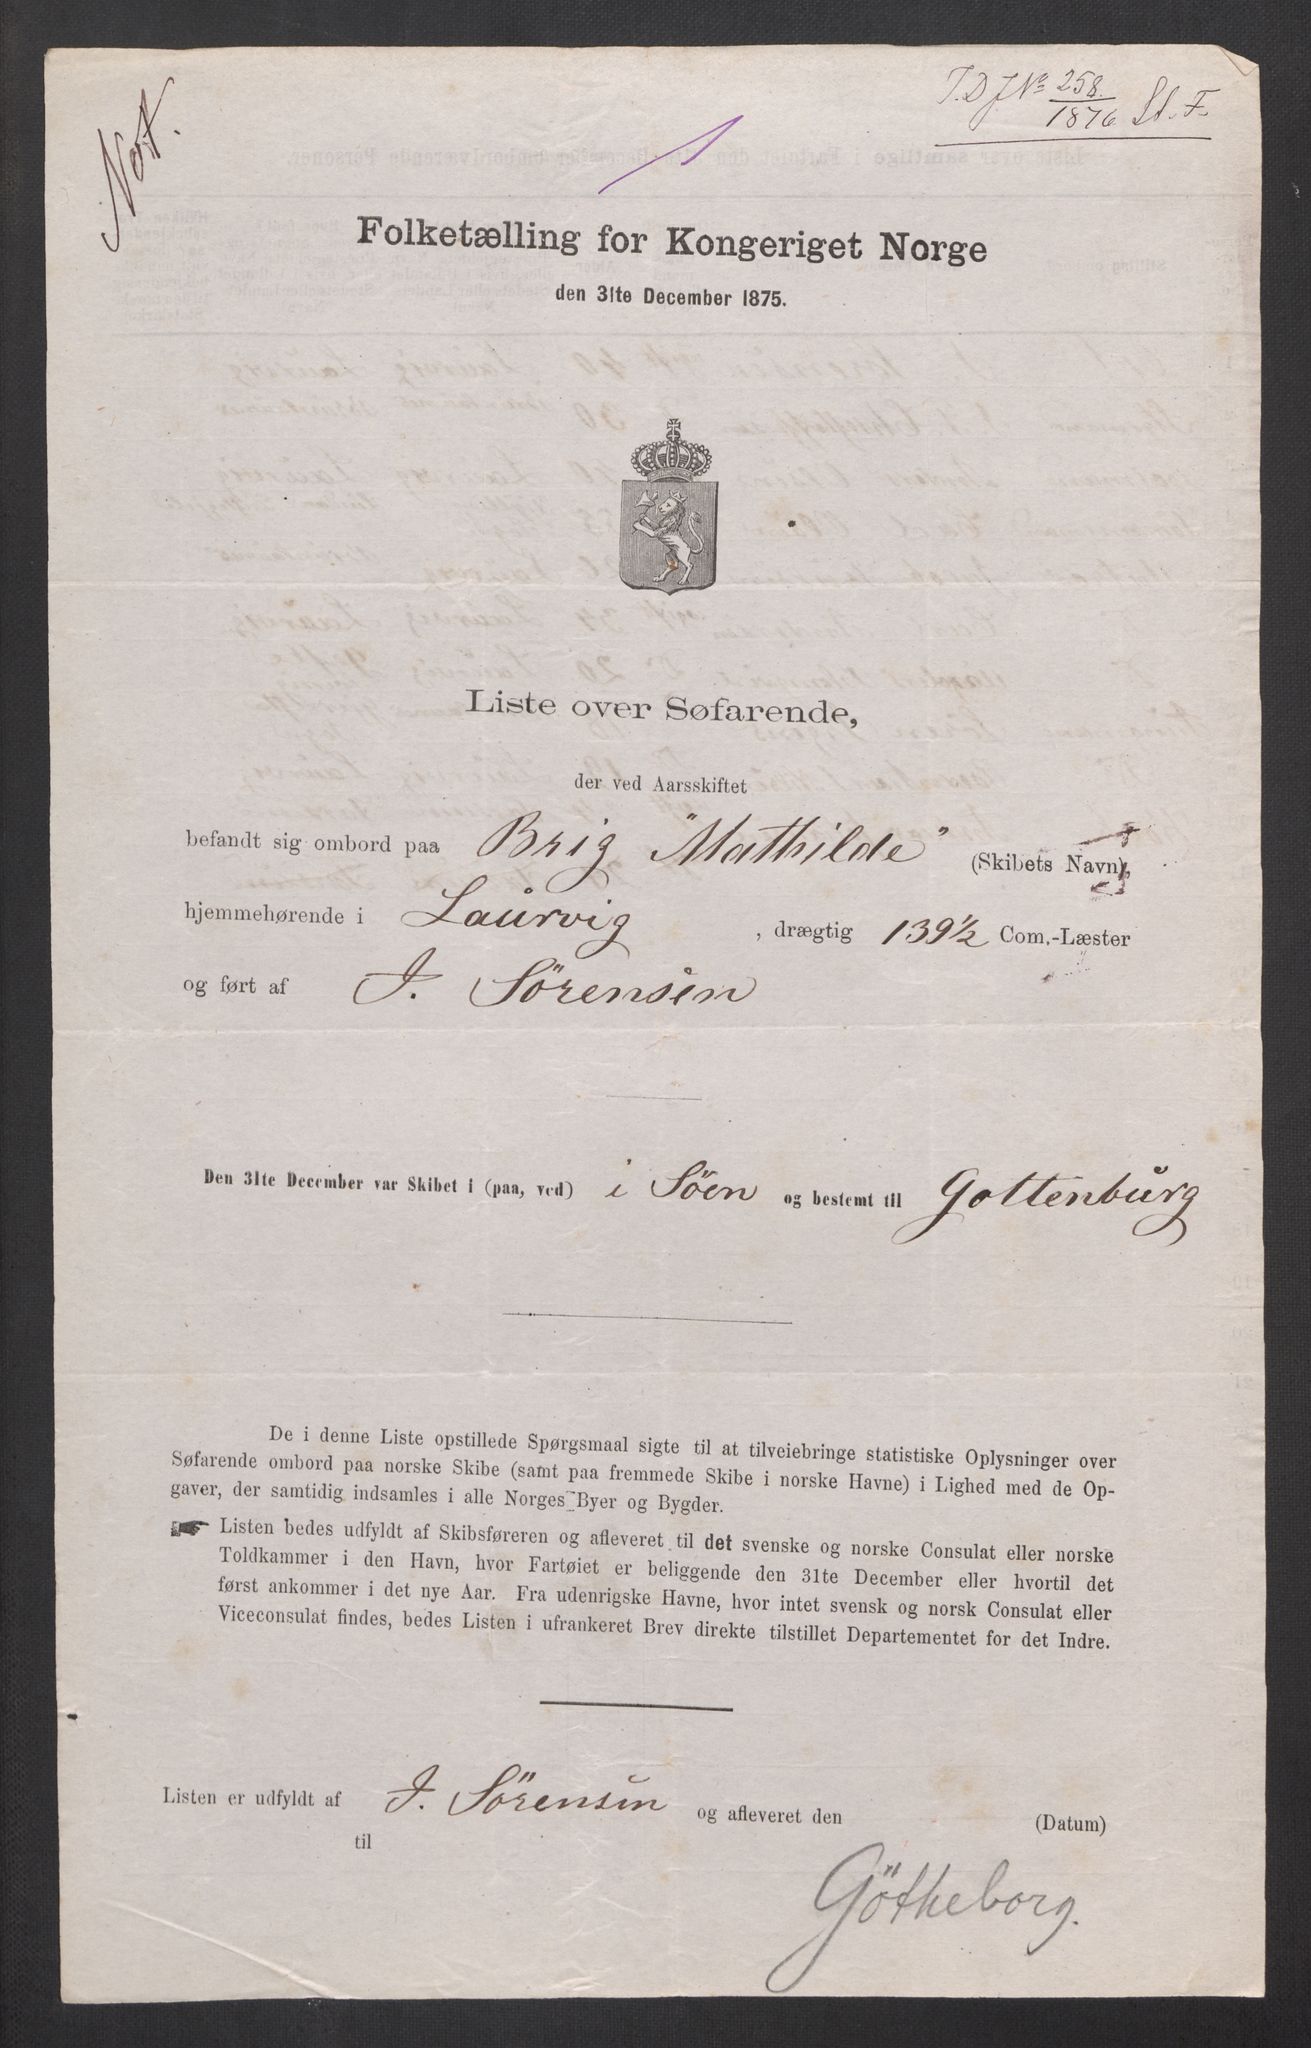 Not.
I.D J№ 258./1876 St. F.
1
Folketælling for Kongeriget Norge
den 31te December 1875.
Liste over Søfarende,
der ved Aarsskiftet
befandt sig ombord paa Brig "Mathilde" (Skibets Navn),
hjemmehørende i Laurvig, drægtig 139½ Com.-Læster
og ført af J. Sörensen
Den 31te December var Skibet i (paa, ved) i Söen og bestemt til Gottenburg
De i denne Liste opstillede Spørgsmaal sigte til at tilveiebringe statistiske Oplysninger over
Søfarende ombord paa norske Skibe (samt paa fremmede Skibe i norske Havne) i Lighed med de Op-
gaver, der samtidig indsamles i alle Norges Byer og Bygder.
☛ Listen bedes udfyldt af Skibsføreren og afleveret til det svenske og norske Consulat eller norske
Toldkammer i den Havn, hvor Fartøiet er beliggende den 31te December eller hvortil det
først ankommer i det nye Aar. Fra udenrigske Havne, hvor intet svensk og norsk Consulat eller
Viceconsulat findes, bedes Listen i ufrankeret Brev direkte tilstillet Departementet for det Indre.
Listen er udfyldt af J. Sörensen og afleveret den (Datum)
til
Götheborg.